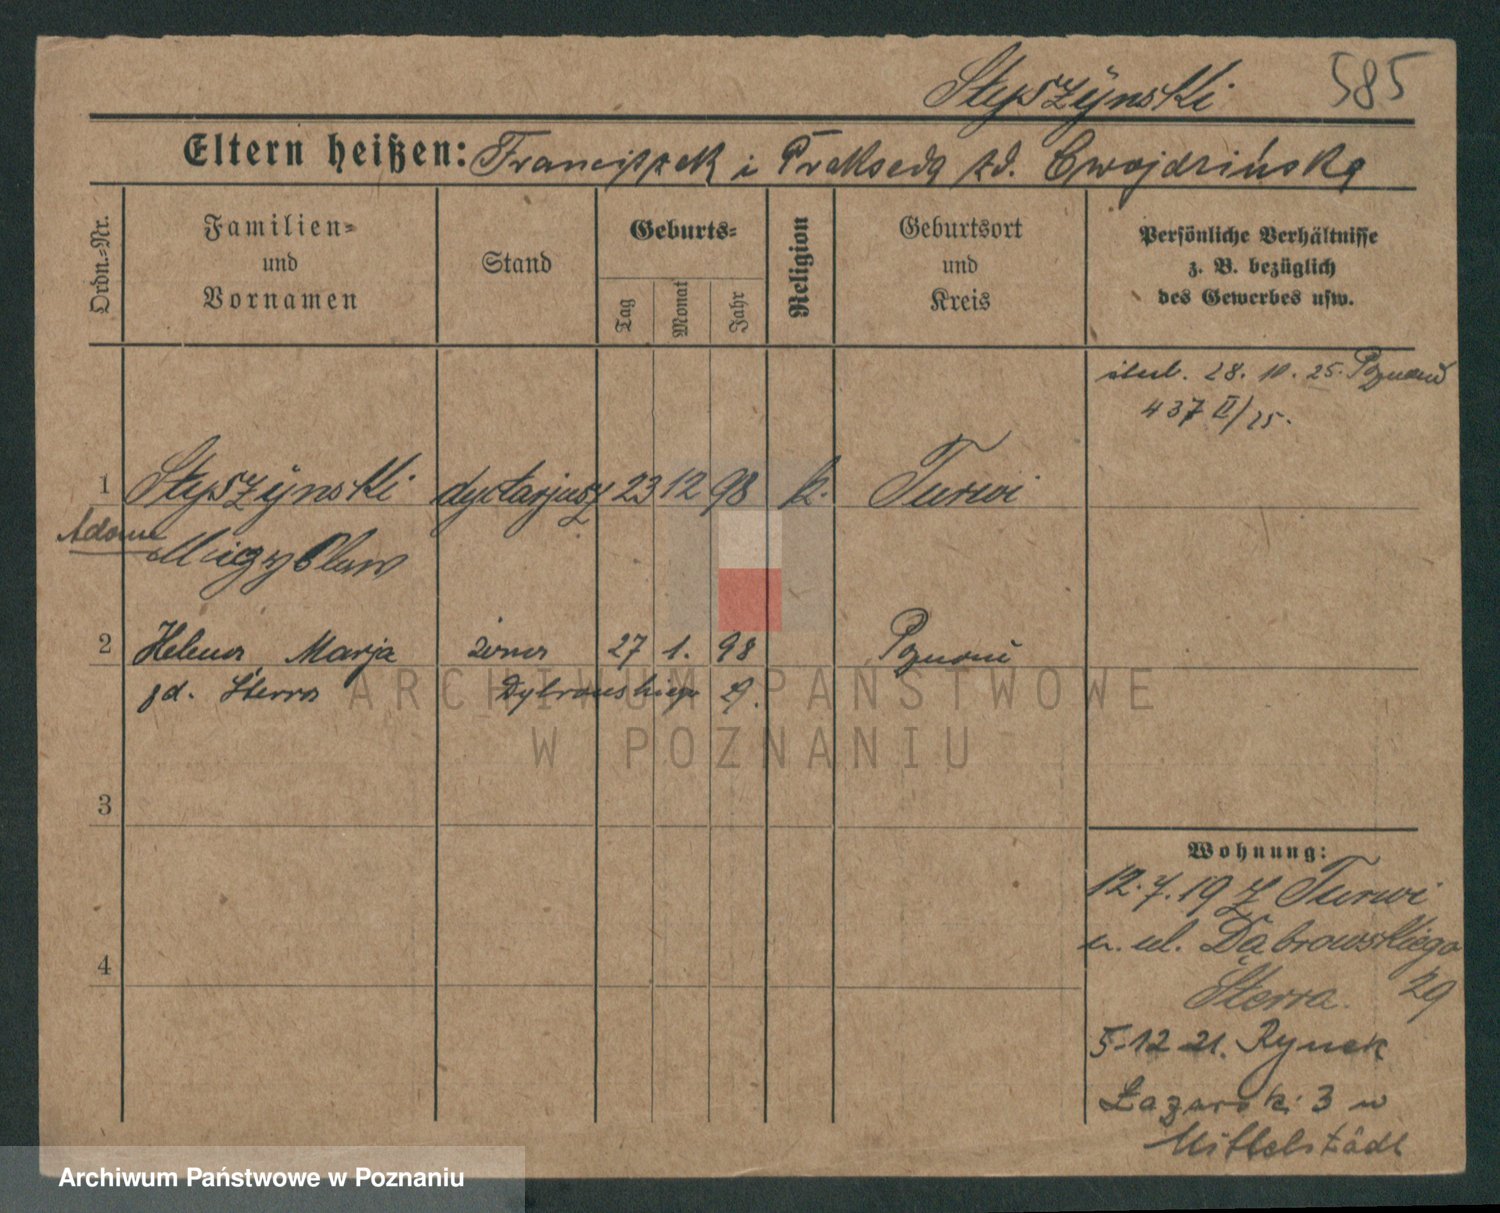 Styszyński 585
Eltern heißen: Franciszek i Prakseda zd. Cwojdzińska
Ordn.=Nr.
Familien=
und
Vornamen
Stand
Geburts=
Tag
Monat
Jahr
Religion
Geburtsort
und
Kreis
Persönliche Verhältnisse
z. B. bezüglich
des Gewerbes usw.
28. 10. 25. Poznań
437 II/25.
1 Styszyński dyetarjusz 23 12 98 k. Turwi
Adam
Mieczysław
2 Helena Marja żona 27 1. 98 Poznań
zd. Sterra
3
4
Wohnung:
12.7.19 z Turwi
n. ul. Dąbrowskiego
Sterra. 29
5-12 21. Rynek
Łazarski 3 w
Mittelstädt
ARCHIWUM PAŃSTWOWE
W POZNANIU
Archiwum Państwowe w Poznaniu